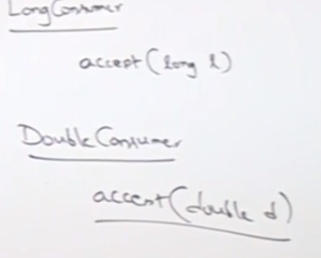 LongConsumer
accept(long l)
DoubleConsumer
accept(double d)